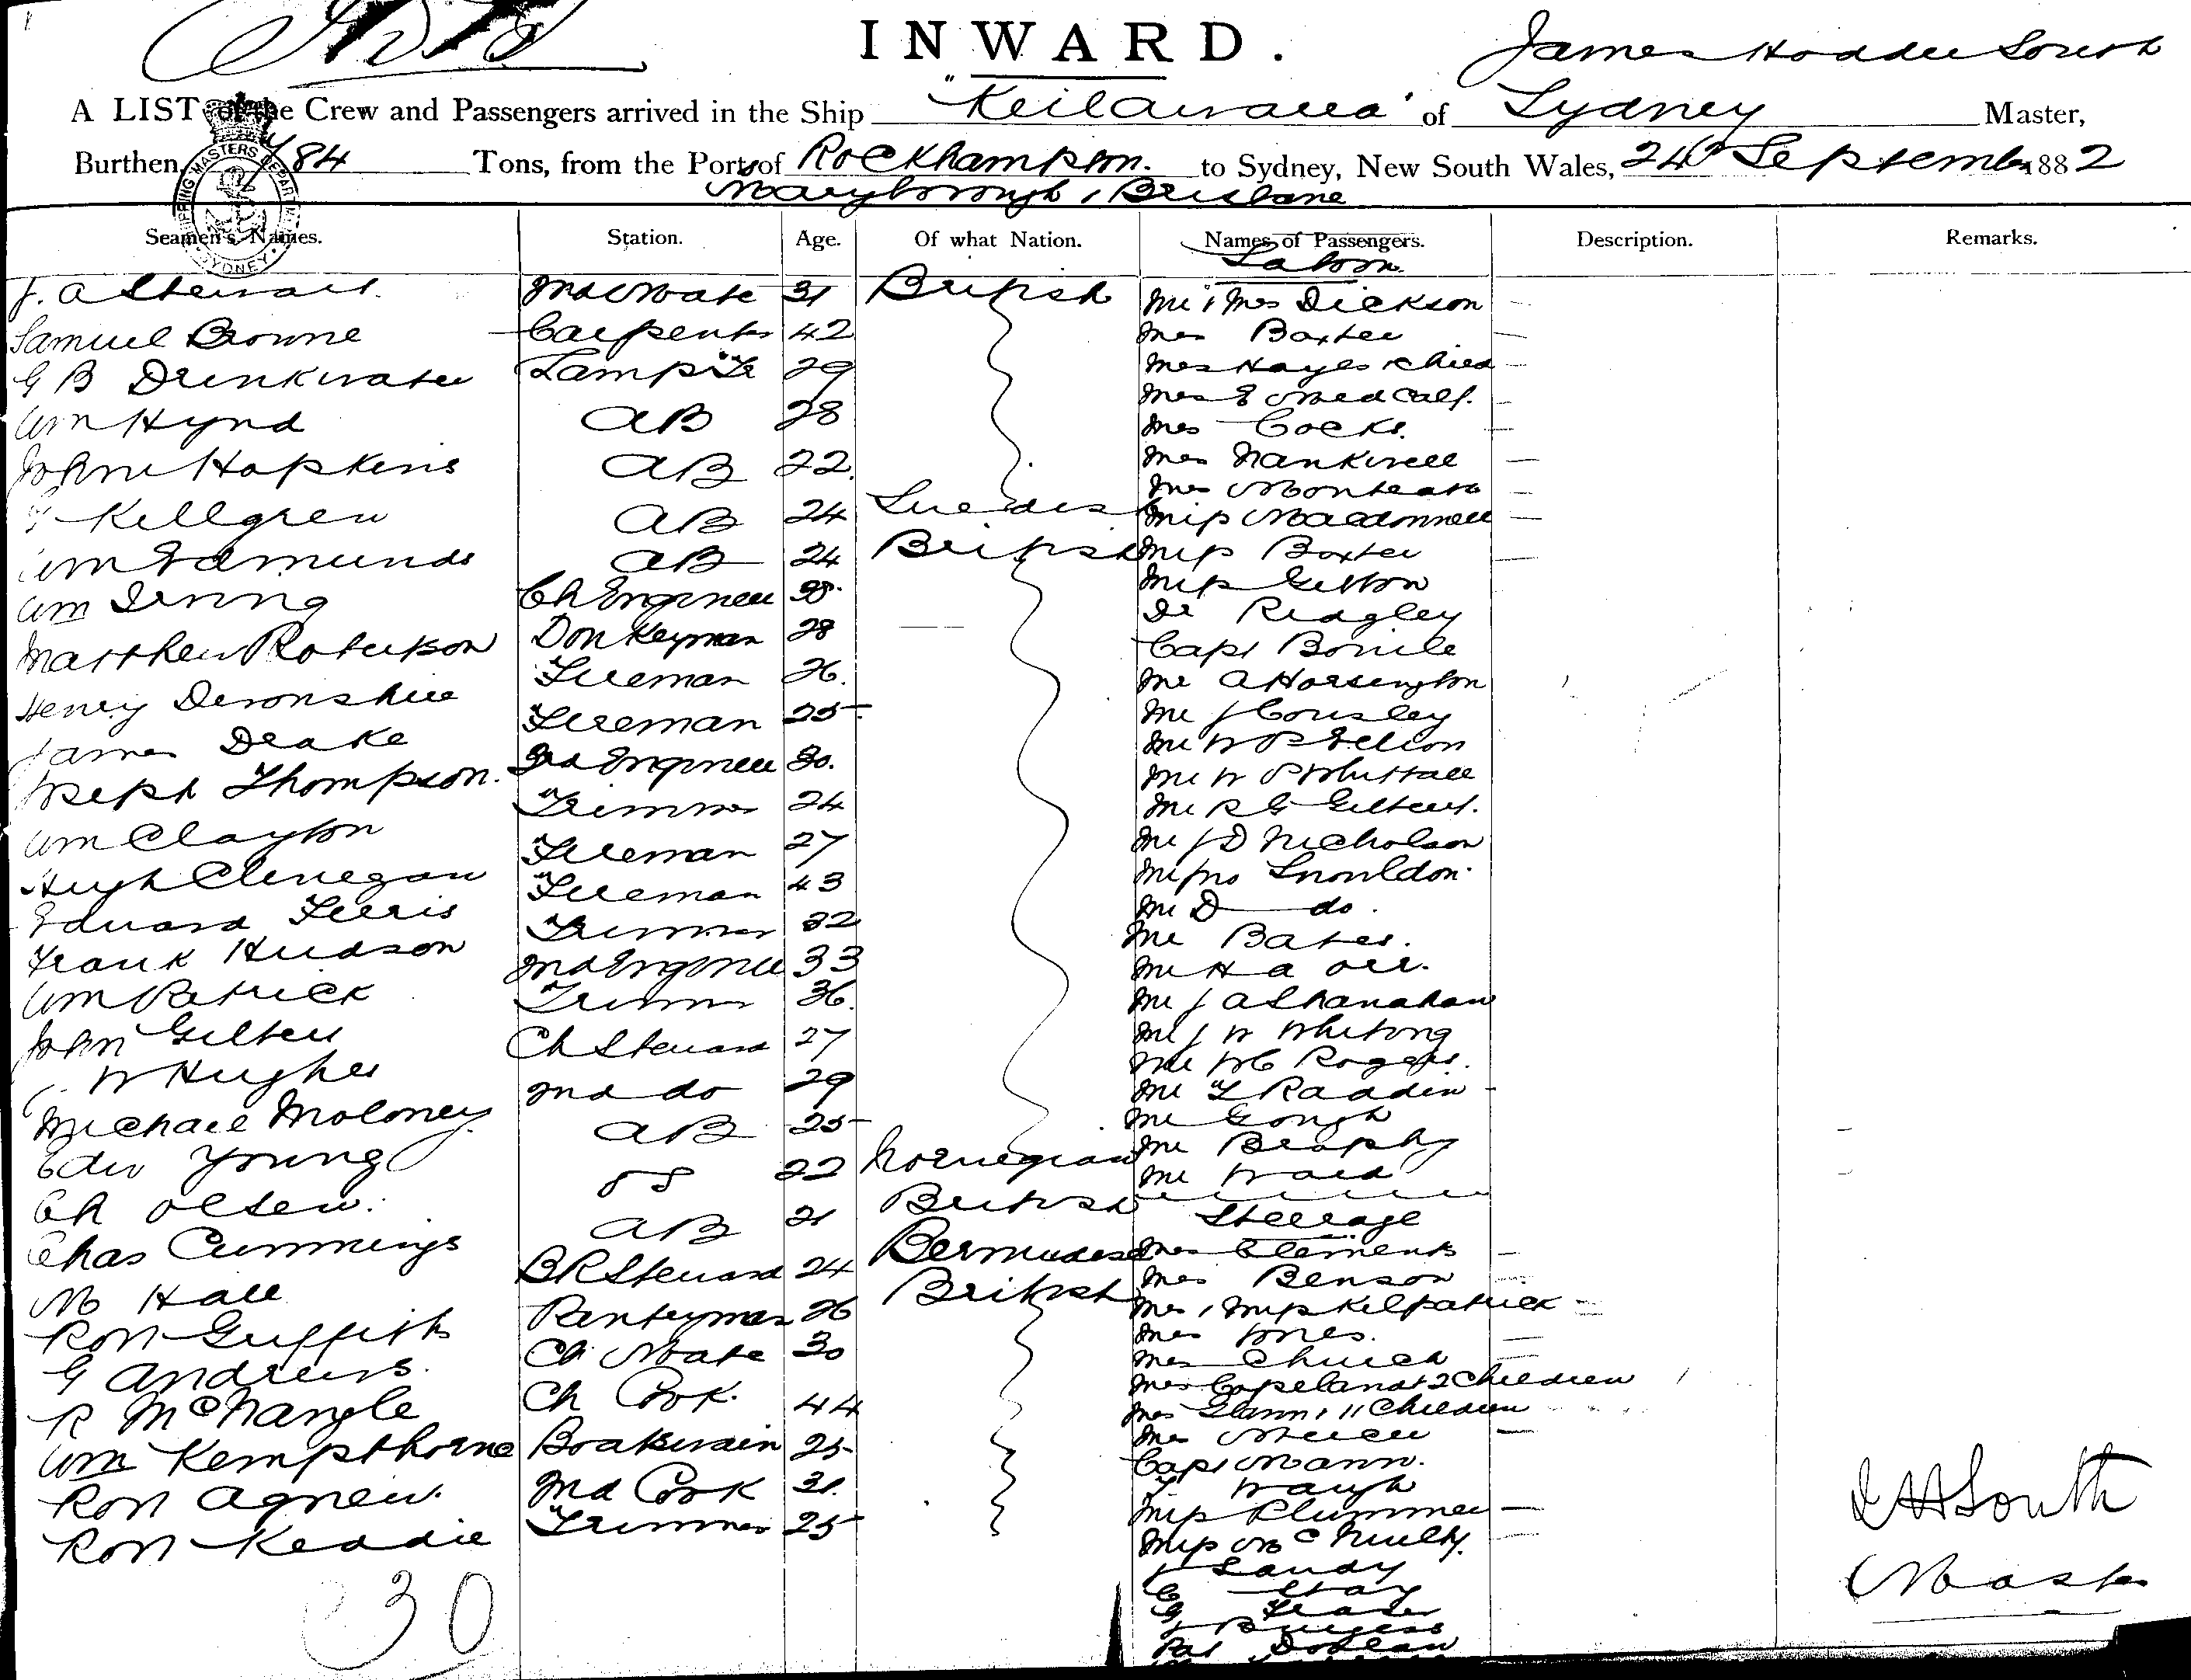 INWARD.
James Hodder South
A LIST of the Crew and Passengers arrived in the Ship "Keilawarra" of Sydney Master,
Burthen 784 Tons, from the Ports of Rockhampton to Sydney, New South Wales, 24th September 1882
Maryborough & Brisbane
SHIPPING MASTERS DEPARTMENT SYDNEY
Seamen's Names. Station. Age. Of what Nation. Names of Passengers. Description. Remarks.
Saloon
J. A Stewart 2nd Mate 31 British Mr & Mrs Dickson
Samuel Browne Carpenter 42 Mrs Baxter
G B Drinkwater Lamp Tr 29 Mrs Hayes & child
Wm Hynd AB 28 Mrs E Medcalf.
Mrs Cocks.
John Hopkins AB 22 Mrs Nankivell
Mrs Monteath
Killgren AB 24 Swedish Miss Macdonnell
Wm Edmunds AB 24 British Miss Baxter
Miss Gibbon
Wm Irving Ch Engineer 38 Dr Ridgley
Matthew Robertson Donkeyman 28 Capt
Henry Devonshire Fireman 26. Mr A Horsington
James Drake Fireman 25 Mr J Cousley
Mr W P
Joseph Thompson. 3rd Engineer 30. Mr W P Whittall
Wm Clayton Trimmer 24 Mr R G Gilbert.
Hugh Clenegan Fireman 27 Mr J D Nicholson
Edward Ferris Fireman 43 Mr Jno Snouldon
Mr D do.
Frank Hudson Trimmer 32 Mr Bates.
Wm Patrick 2nd Engineer 33 Mr H A Orr.
John Gilbert Trimmer 36. Mr J A Shanahan
W Hughes Ch Steward 27 Mr J W Whiting
Mr W C Rogers.
Michael Moloney 2nd do 29 Mr T Raddin
Edw Young AB 25 Mr Gough
Mr Brophy
Ch Olsen. OS 22 Norwegian Mr Ward
Chas Cummings AB 21 British Steerage
M Hall BR Steward 24 Bermudese Mrs Clements
Mrs Benson
Robt Griffith Pantryman 26 British Mrs & Miss Kilpatrick
G Andrews. Ch Mate 30 Mrs Jones.
Mrs Church
R McNangle Ch Cook. 44 Mrs Copeland & 2 Children
Mrs & 11 Children
Wm Kempthorne Boatswain 25 Mrs
Capt Mann.
Robt Agnew. 2nd Cook 31. T Waugh
Robt Keddie Trimmer 25 Miss Plummer
Miss McNulty.
J Sandy
C Gray
G Fraser
J Burgess
Pat
30
J H South
Master